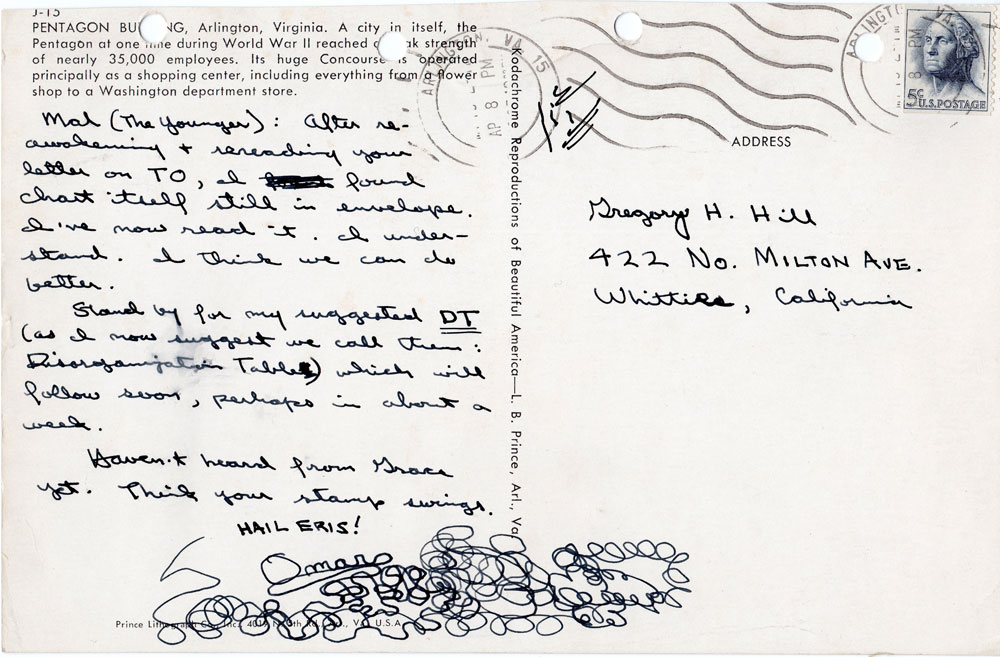 J-15
PENTAGON BUILDING, Arlington, Virginia. A city in itself, the
Pentagon at one time during World War II reached peak strength
of nearly 35,000 employees. Its huge Concourse is operated
principally as a shopping center, including everything from a flower
shop to a Washington department store.
Mal (The Younger): After re-
awakening + rereading your
letter on TO, I found
chart itself still in envelope.
I've now read it. I under-
stand. I think we can do
better.
Stand by for my suggested DT
(as I now suggest we call them:
Disorganization Tables) which will
follow soon, perhaps in about a
week.
Haven't heard from Grace
yet. Think your stamp swings.
HAIL ERIS!
Omar
Prince Lithograph Co., Inc. Rd., VA. U.S.A.
Kodachrome Reproductions of Beautiful America—L. B. Prince, Arl., Va.
ARLINGTON, VA. 15
8 PM
AP
ARLINGT VA
8 PM
5¢
U.S. POSTAGE
ADDRESS
Gregory H. Hill
422 No. MILTON AVE.
Whittier, California